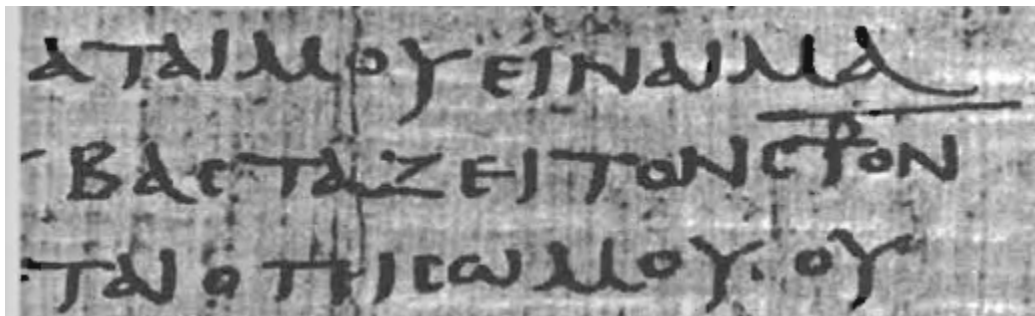 ΑΤΑΙΜΟΥΕΙΝΑΙΜΑ
ΒΑϹΤΑΖΕΙΤΟΝϹ⳨ΟΝ
ΤΑΙΟΠΙϹΩΜΟΥ·ΟΥ